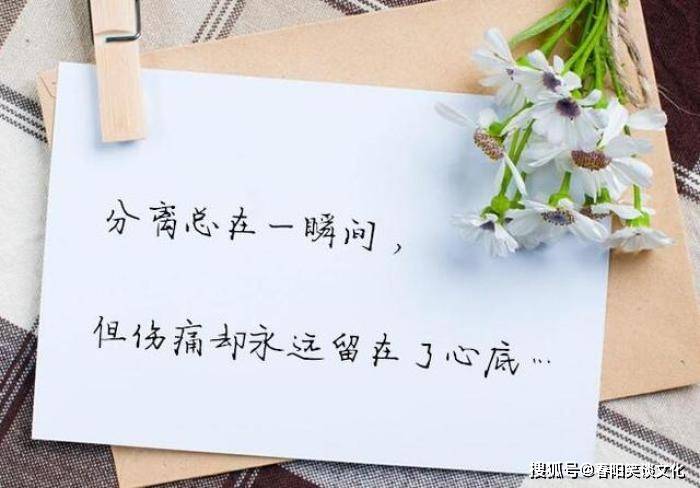 分离总在一瞬间，
但伤痛却永远留在了心底…
搜狐号@春阳笑谈文化